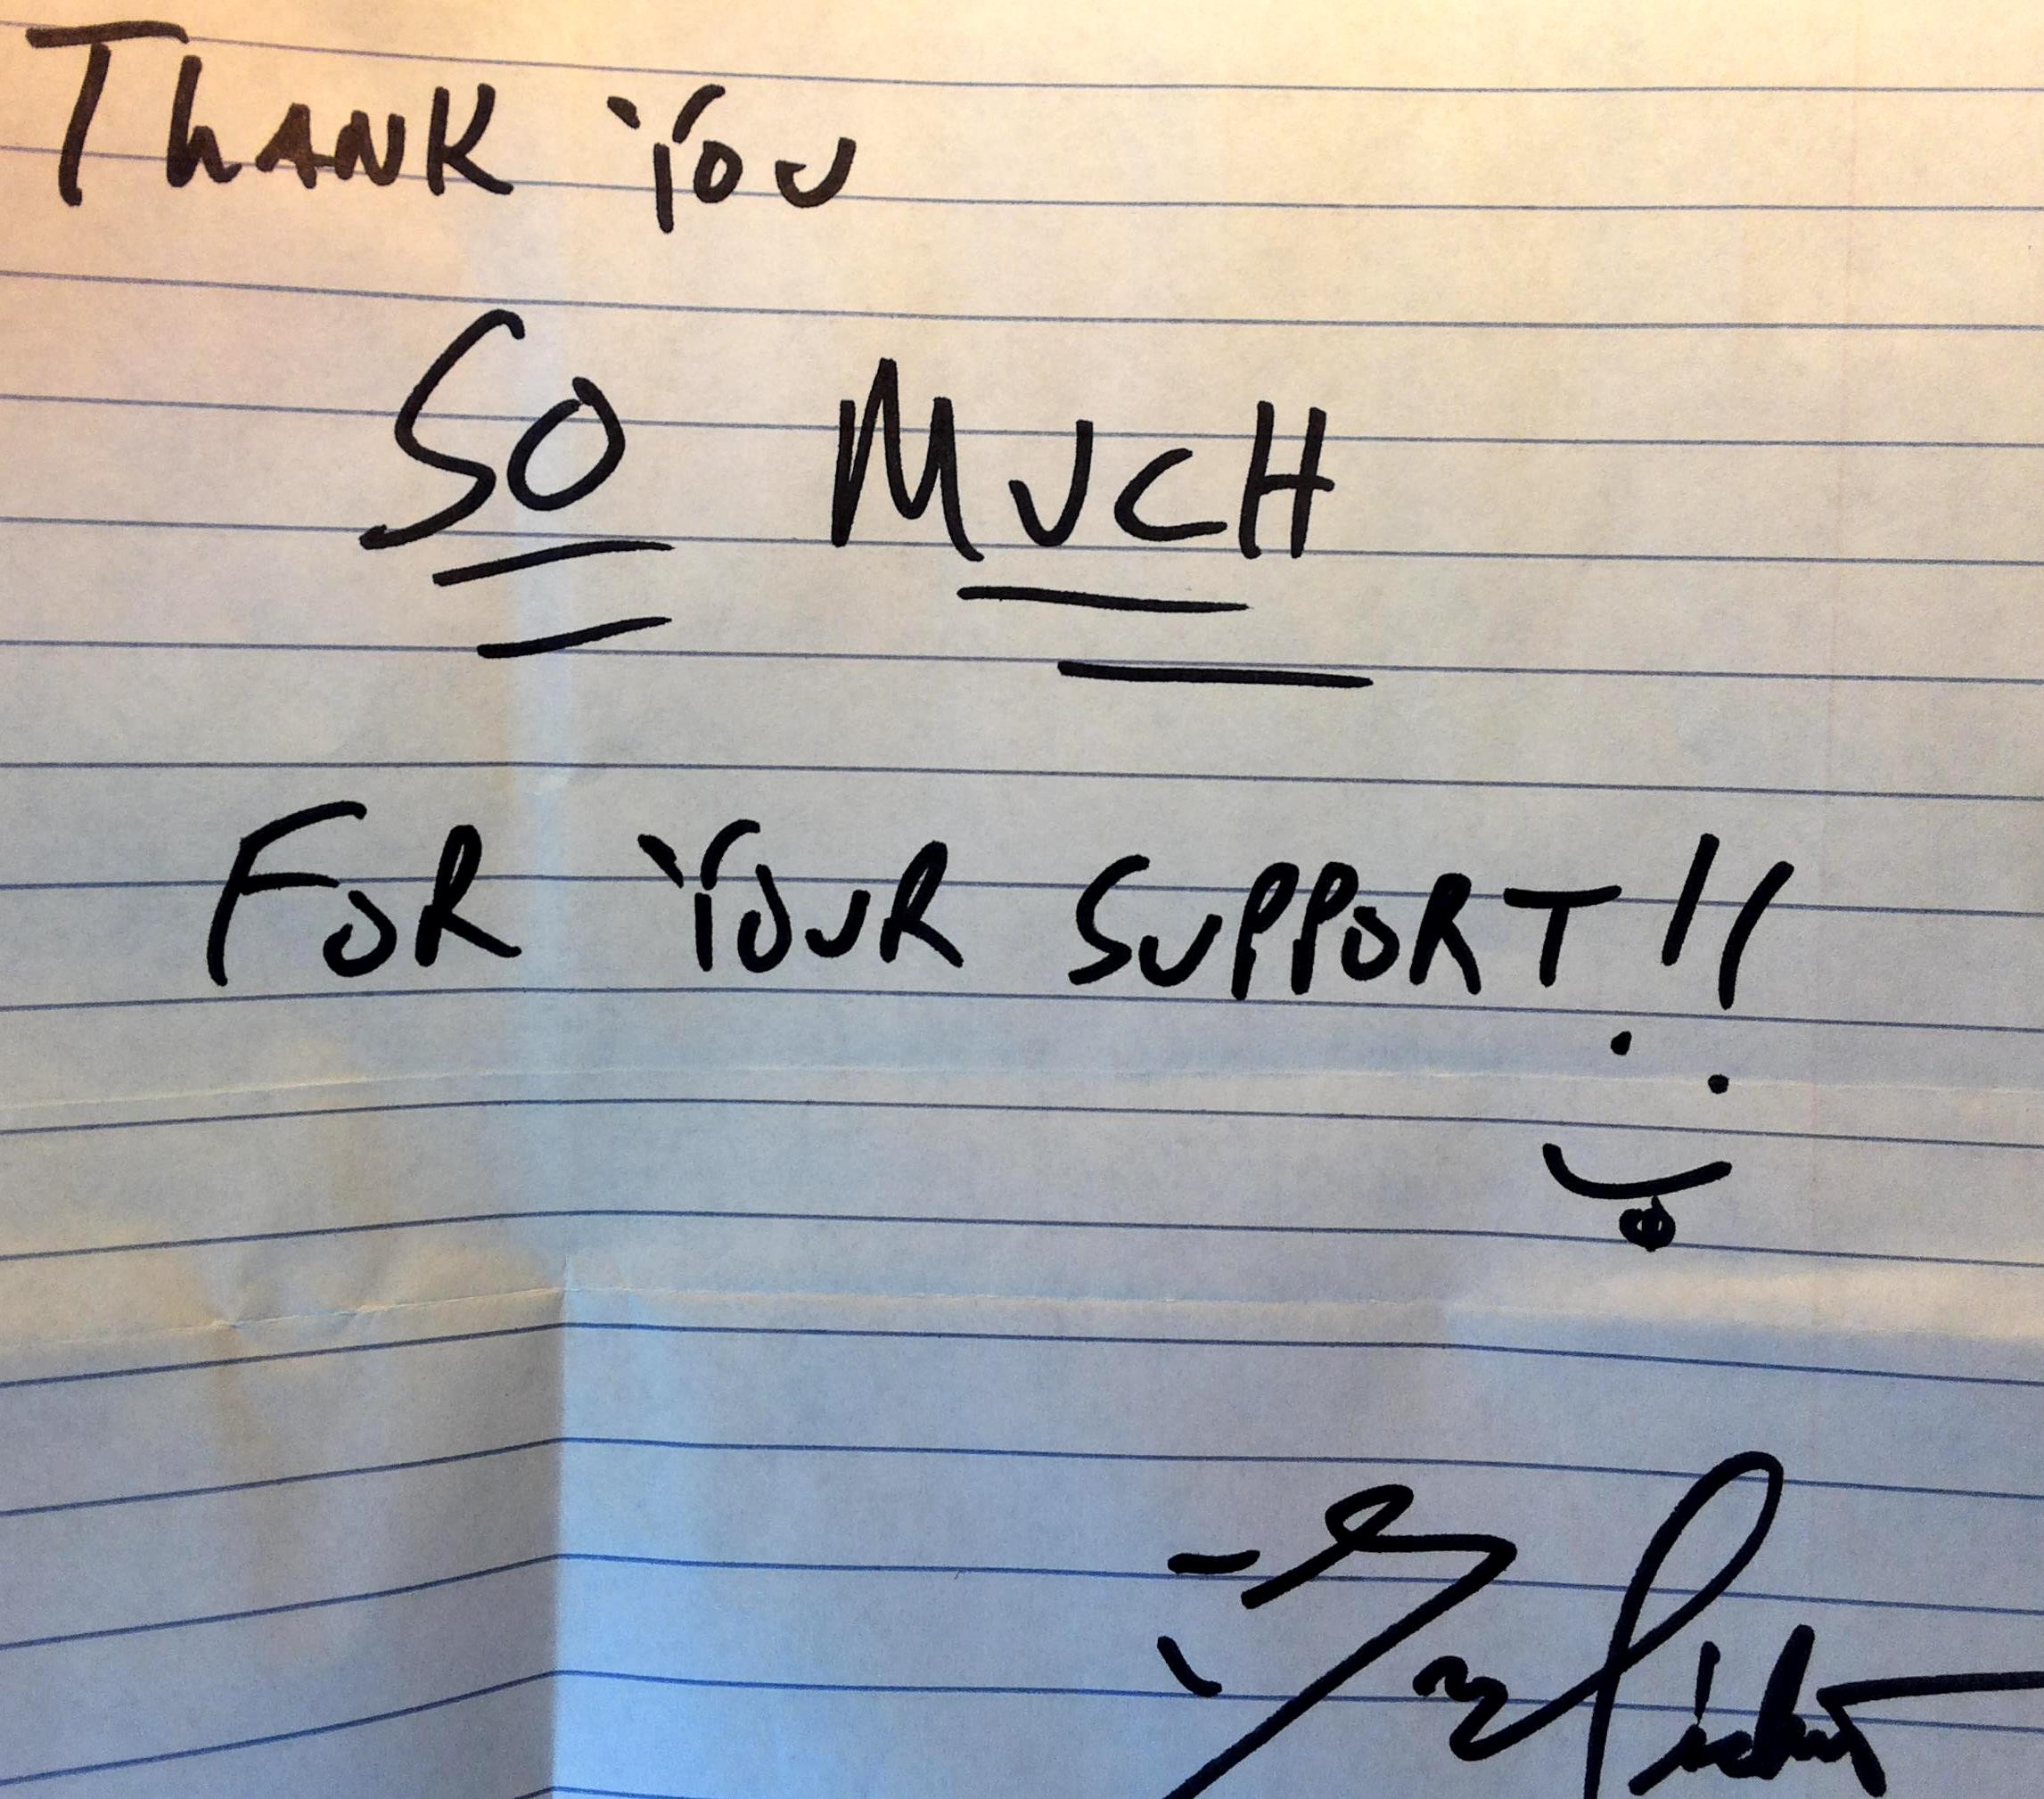 THANK YOU
SO MUCH
FOR YOUR SUPPORT!!